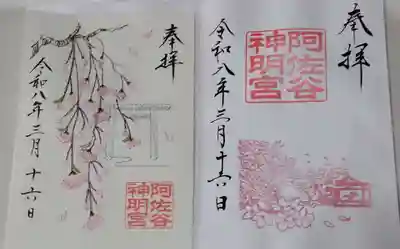 奉拝
阿佐谷
神明宮
令和八年三月十六日
奉拝
阿佐谷
神明宮
令和八年三月十六日